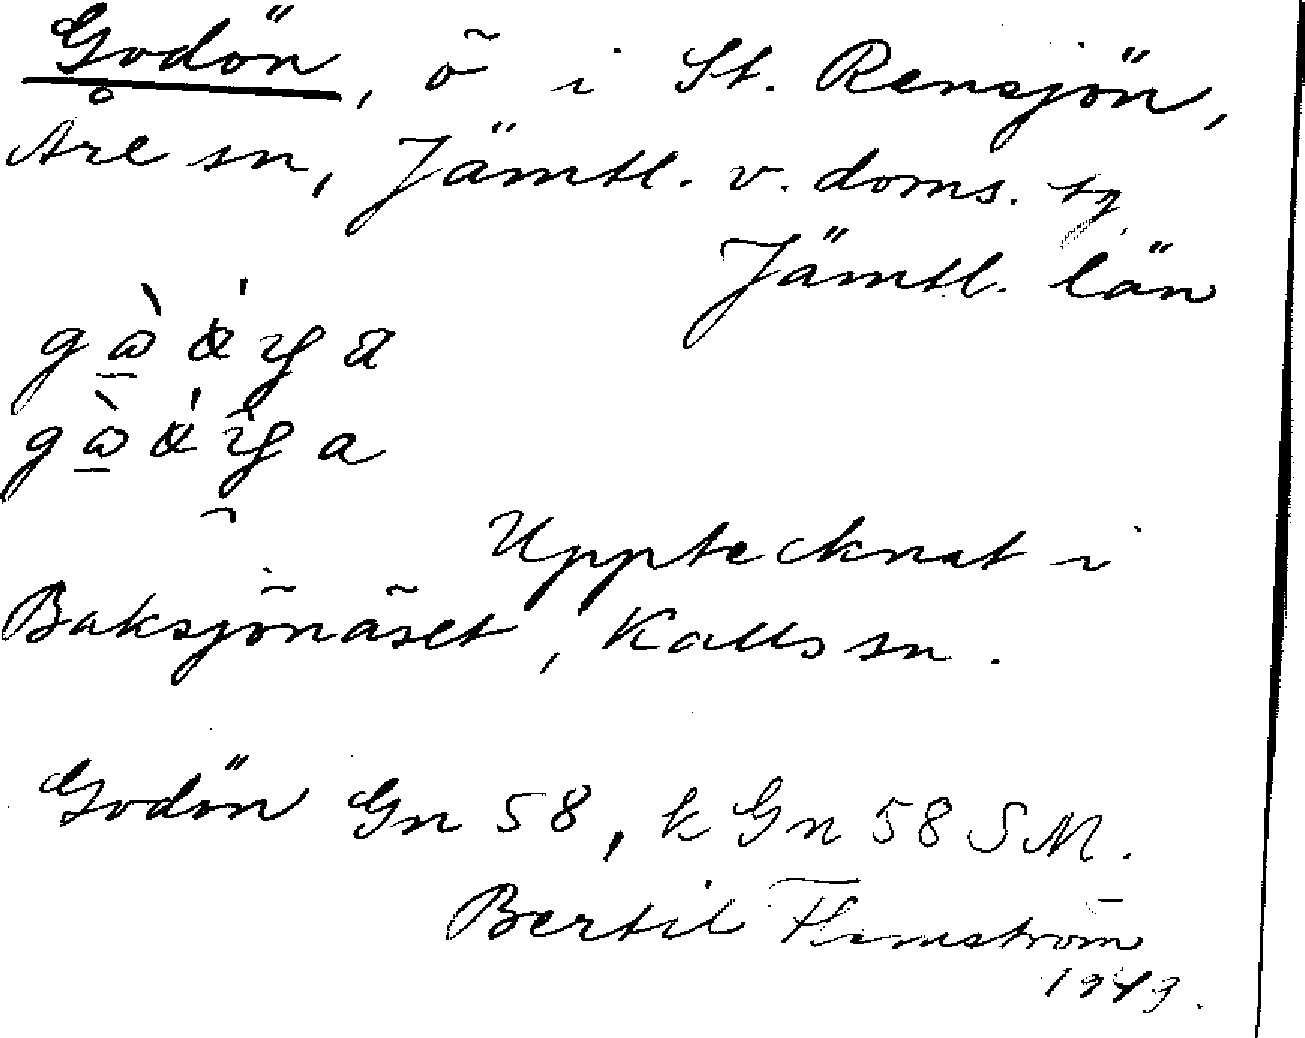 Godön, ö i St. Rensjön,
Åre sn, Jämtl. v. doms. tg
Jämtl. län
Upptecknat i
Baksjönäset, Kalls sn.
Godön Gn 58, k Gn 58 SM.
Bertil Flemström
1949.